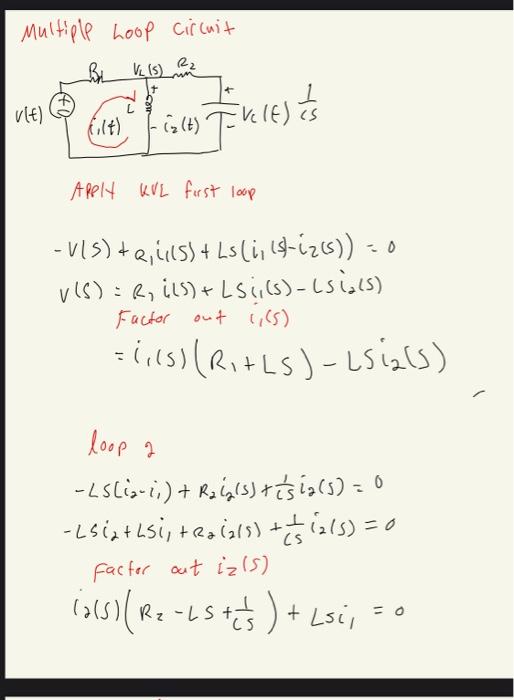 Multiple Loop Circuit
R1 VL(s) R2
+ +
v(t) + i1(t) L - i2(t) - Vc(t) 1/cs
Apply KVL first loop
-V(s) + R1i1(s) + Ls(i1(s)-i2(s)) = 0
V(s) = R1 i1(s) + LSi1(s) - LSi2(s)
Factor out i1(s)
= i1(s)(R1+LS) - LSi2(s)
loop 2
-LS(i2-i1) + R2i2(s) + 1/cs i2(s) = 0
-LSi2+LSi1 + R2i2(s) + 1/cs i2(s) = 0
Factor out i2(s)
i2(s)(R2 - LS + 1/cs) + LSi1 = 0